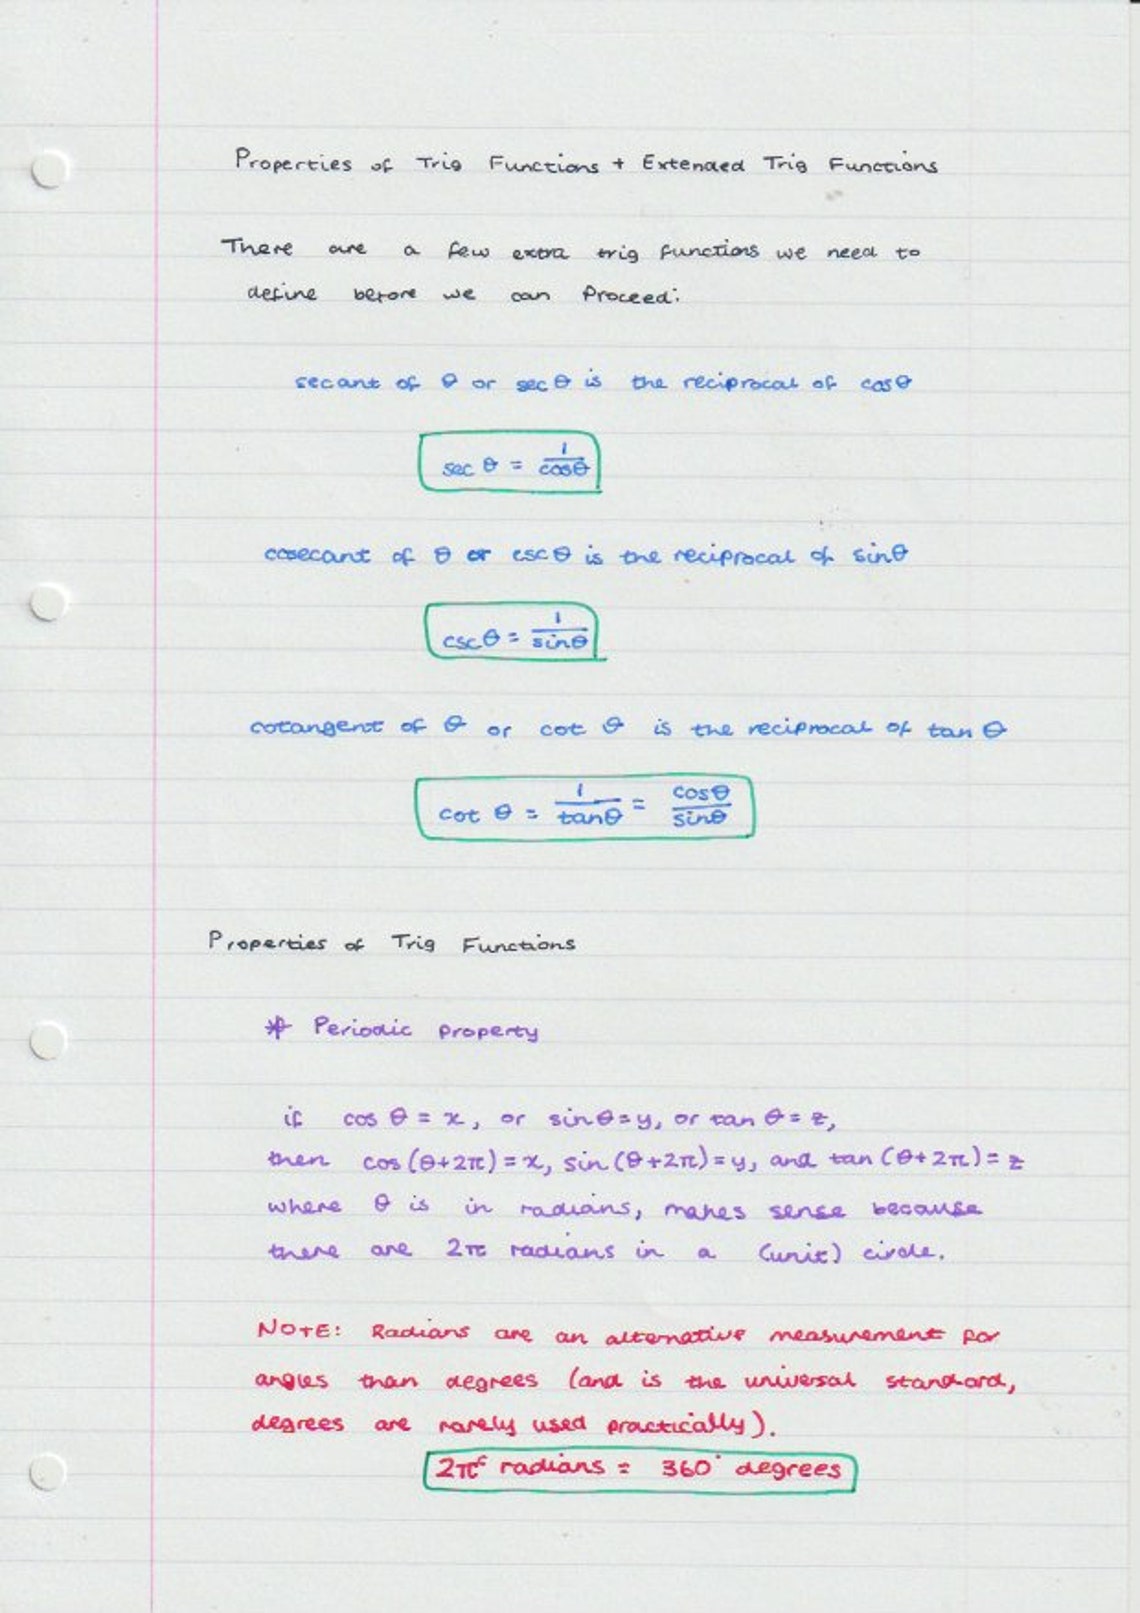 Properties of Trig Functions + Extended Trig Functions
There are a few extra trig functions we need to
define before we can proceed:
secant of θ or sec θ is the reciprocal of cos θ
sec θ = 1/cosθ
cosecant of θ or csc θ is the reciprocal of sinθ
cscθ = 1/sinθ
cotangent of θ or cot θ is the reciprocal of tan θ
cot θ = 1/tanθ = cosθ/sinθ
Properties of Trig Functions
* Periodic property
if cos θ = x, or sinθ=y, or tan θ = z,
then cos (θ+2π) = x, sin (θ+2π) = y, and tan (θ+2π) = z
where θ is in radians, makes sense because
there are 2π radians in a (unit) circle.
NOTE: Radians are an alternative measurement for
angles than degrees (and is the universal standard,
degrees are rarely used practically).
2πᶜ radians = 360° degrees